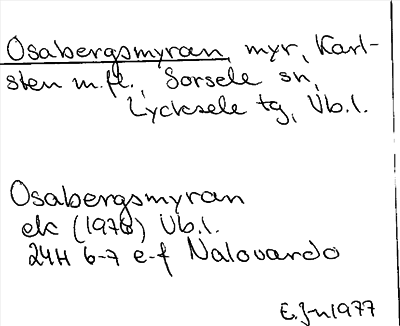 Osabergsmyran, myr, Karl-
sten m.fl., Sorsele sn,
Lycksele tg, Vb.l.
Osabergsmyran
ek (1976) Vb.l.
24H 6-7 e-f Nalovardo
E.J-n 1977